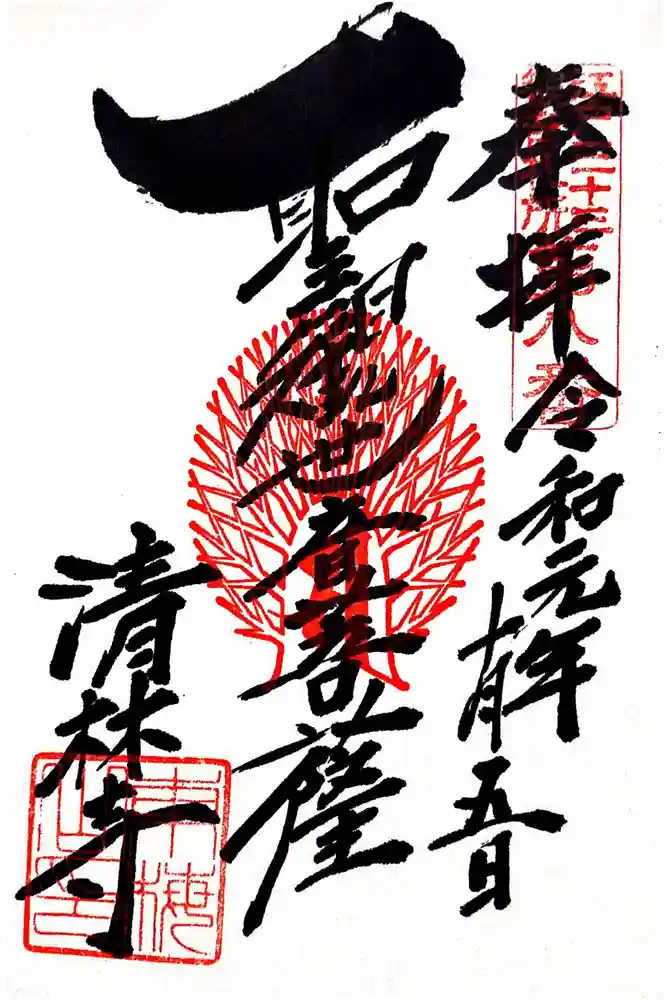 奉拝
令和元年
十月
五日
聖観世音菩薩
清林寺